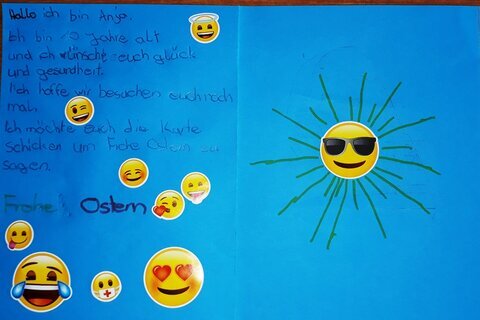 Hallo ich bin Anja.
Ich bin 10 Jahre alt
und ich wünsche euch glück
und gesundheit.
Ich hoffe wir besuchen euch noch
mal.
Ich möchte euch die Karte
schicken um Frohe Ostern zu
sagen.
Frohe Ostern